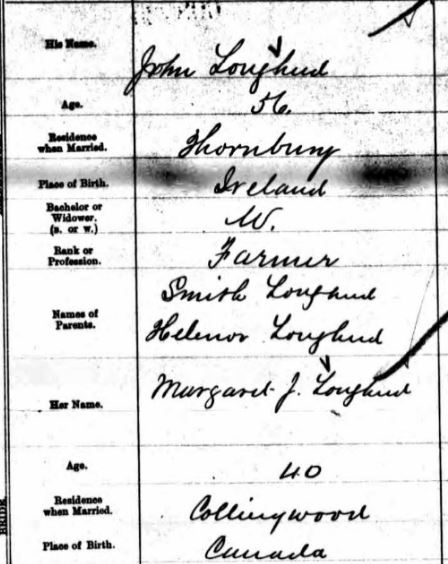 His Name.
John Loughud
Age.
56.
Residence
when Married.
Thornbury
Place of Birth.
Ireland
Bachelor or
Widower.
(B. or W.)
W.
Rank or
Profession.
Farmer
Names of
Parents.
Smith Loughud
Helenor Loughud
Her Name.
Margaret J. Loughud
Age.
40
Residence
when Married.
Collingwood
Place of Birth.
Canada
BRIDE.